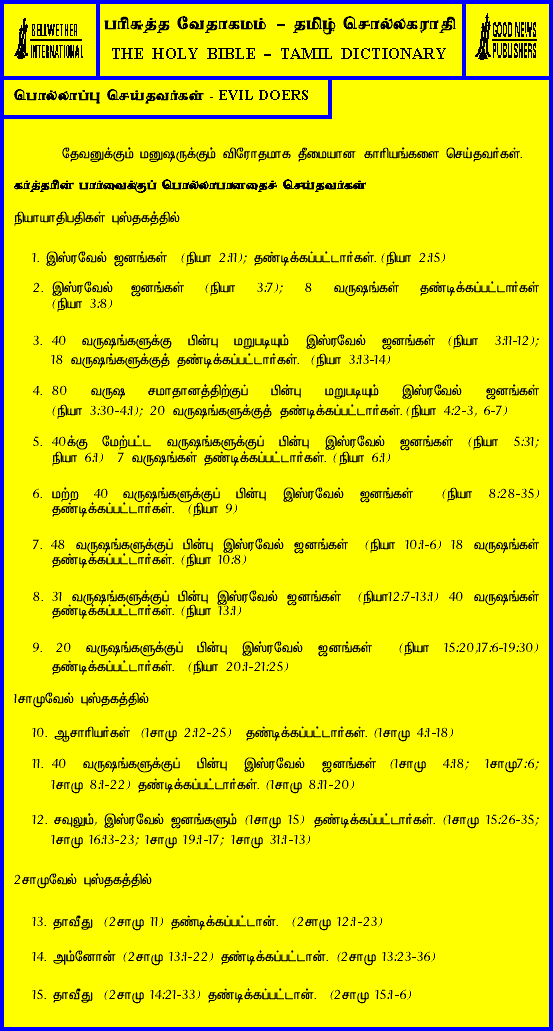 BELLWETHER
INTERNATIONAL
பரிசுத்த வேதாகமம் – தமிழ் சொல்லகராதி
THE HOLY BIBLE – TAMIL DICTIONARY
GOOD NEWS
PUBLISHERS
பொல்லாப்பு செய்தவர்கள் - EVIL DOERS
தேவனுக்கும் மனுஷருக்கும் விரோதமாக தீமையான காரியங்களை செய்தவர்கள்.
கர்த்தரின் பார்வைக்குப் பொல்லாபானதைச் செய்தவர்கள்
நியாயாதிபதிகள் புஸ்தகத்தில்
1. இஸ்ரவேல் ஜனங்கள் (நியா 2:11); தண்டிக்கப்பட்டார்கள். (நியா 2:15)
2. இஸ்ரவேல் ஜனங்கள் (நியா 3:7); 8 வருஷங்கள் தண்டிக்கப்பட்டார்கள்
(நியா 3:8)
3. 40 வருஷங்களுக்கு பின்பு மறுபடியும் இஸ்ரவேல் ஜனங்கள் (நியா 3:11-12);
18 வருஷங்களுக்குத் தண்டிக்கப்பட்டார்கள். (நியா 3:13-14)
4. 80 வருஷ சமாதானத்திற்குப் பின்பு மறுபடியும் இஸ்ரவேல் ஜனங்கள்
(நியா 3:30-4:1); 20 வருஷங்களுக்குத் தண்டிக்கப்பட்டார்கள். (நியா 4:2-3, 6-7)
5. 40க்கு மேற்பட்ட வருஷங்களுக்குப் பின்பு இஸ்ரவேல் ஜனங்கள் (நியா 5:31;
நியா 6:1) 7 வருஷங்கள் தண்டிக்கப்பட்டார்கள். (நியா 6:1)
6. மற்ற 40 வருஷங்களுக்குப் பின்பு இஸ்ரவேல் ஜனங்கள் (நியா 8:28-35)
தண்டிக்கப்பட்டார்கள். (நியா 9)
7. 48 வருஷங்களுக்குப் பின்பு இஸ்ரவேல் ஜனங்கள் (நியா 10:1-6) 18 வருஷங்கள்
தண்டிக்கப்பட்டார்கள். (நியா 10:8)
8. 31 வருஷங்களுக்குப் பின்பு இஸ்ரவேல் ஜனங்கள் (நியா12:7-13:1) 40 வருஷங்கள்
தண்டிக்கப்பட்டார்கள். (நியா 13:1)
9. 20 வருஷங்களுக்குப் பின்பு இஸ்ரவேல் ஜனங்கள் (நியா 15:20,17:6-19:30)
தண்டிக்கப்பட்டார்கள். (நியா 20:1-21:25)
1சாமுவேல் புஸ்தகத்தில்
10. ஆசாரியர்கள் (1சாமு 2:12-25) தண்டிக்கப்பட்டார்கள். (1சாமு 4:1-18)
11. 40 வருஷங்களுக்குப் பின்பு இஸ்ரவேல் ஜனங்கள் (1சாமு 4:18; 1சாமு7:6;
1சாமு 8:1-22) தண்டிக்கப்பட்டார்கள். (1சாமு 8:11-20)
12. சவுலும், இஸ்ரவேல் ஜனங்களும் (1சாமு 15) தண்டிக்கப்பட்டார்கள். (1சாமு 15:26-35;
1சாமு 16:13-23; 1சாமு 19:1-17; 1சாமு 31:1-13)
2சாமுவேல் புஸ்தகத்தில்
13. தாவீது (2சாமு 11) தண்டிக்கப்பட்டான். (2சாமு 12:1-23)
14. அம்னோன் (2சாமு 13:1-22) தண்டிக்கப்பட்டான். (2சாமு 13:23-36)
15. தாவீது (2சாமு 14:21-33) தண்டிக்கப்பட்டான். (2சாமு 15:1-6)